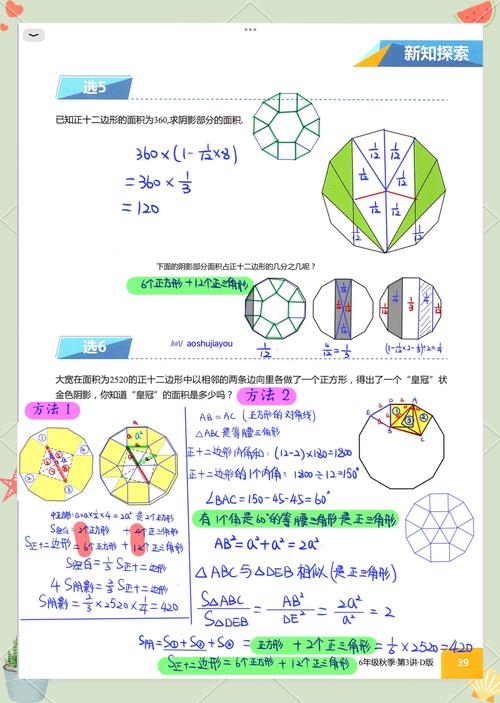 新知探索
选5
已知正十二边形的面积为360,求阴影部分的面积.
360×(1-1/12×8)
=360×1/3
=120
1/12 1/12
1/12 1/12
1/12 1/12
1/12 1/12
下面的阴影部分面积占正十二边形的几分之几呢?
6个正方形+12个正三角形
1/12
4/12=1/3
(1-1/12×2-1/3)÷2=1/4
选6
/xl/ aoshujiayou
大宽在面积为2520的正十二边形中以相邻的两条边向里各做了一个正方形,得出了一个“皇冠”状
金色阴影,你知道“皇冠”的面积是多少吗?
方法1
方法2
AB=AC(正方形的对角线)
△ABC是等腰三角形
正十二边形内角和:(12-2)×180=1800
正十二边形的1个内角:1800÷12=150°
∠BAC=150-45-45=60°
有1个角是60°的等腰三角形是正三角形
AB²=a²+a²=2a²
△ABC与△DEB相似(是正三角形)
S△ABC/S△DEB=AB²/DE²=2a²/a²=2
中正方形:a×a×1/2×4=2a²是2个正方形
S空白=2个正方形+4个正三角形
S正十二边形=6个正方形+12个正三角形
S空白=1/3S正十二边形
4S阴影=2/3S正十二边形
S阴影=2/3×2520×1/4=420
S阴=S①+S②+S③=正方形+2个正三角形=1/6×2520=420
S正十二边形=6个正方形+12个正三角形
6年级秋季·第3讲·D版
39